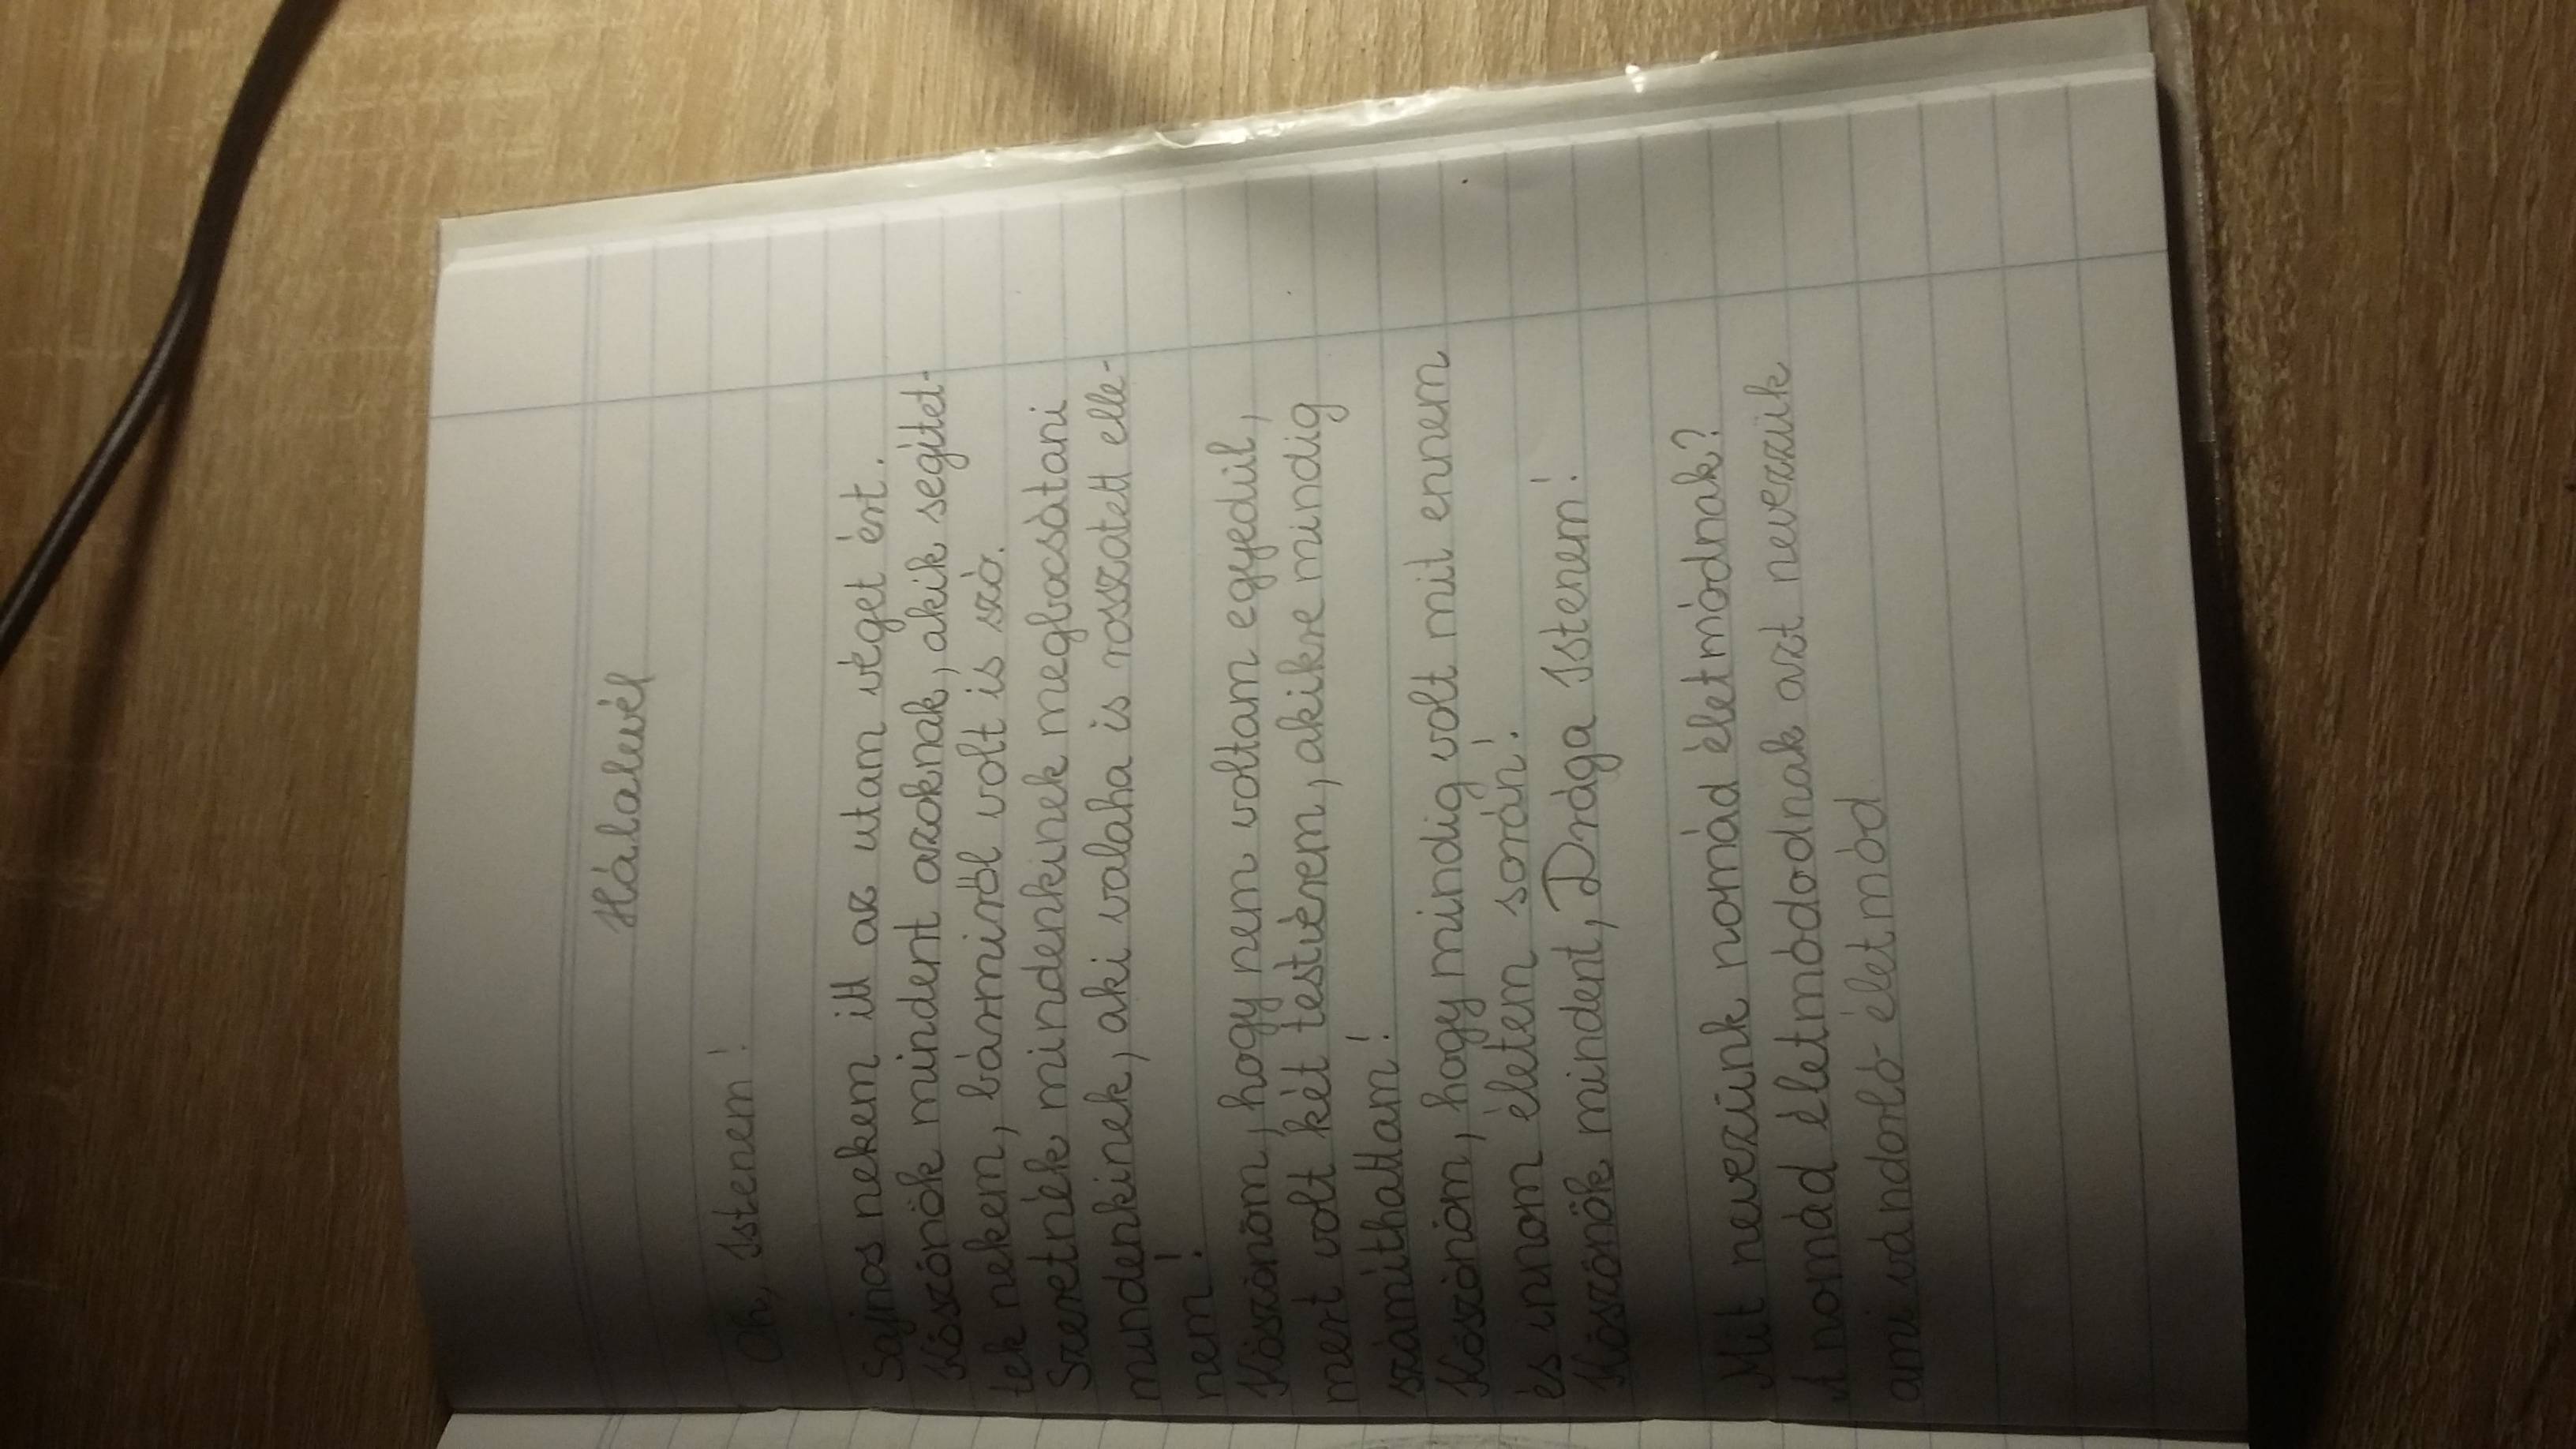 Hálalevél
Oh, Istenem!
Sajnos nekem itt az utam véget ért.
Köszönök mindent azoknak, akik segítet-
tek nekem, bármiről volt is szó.
Szeretnék mindenkinek megbocsátani
mindenkinek, aki valaha is rosszatett elle-
nem!
Köszönöm, hogy nem voltam egyedül,
mert volt két testvérem, akikre mindig
számíthattam!
Köszönöm, hogy mindig volt mit ennem
és innom életem során!
Köszönök mindent, Drága Istenem!
Mit nevezünk nomád életmódnak?
A nomád életmódodnak azt nevezzük
ami vándorló életmód